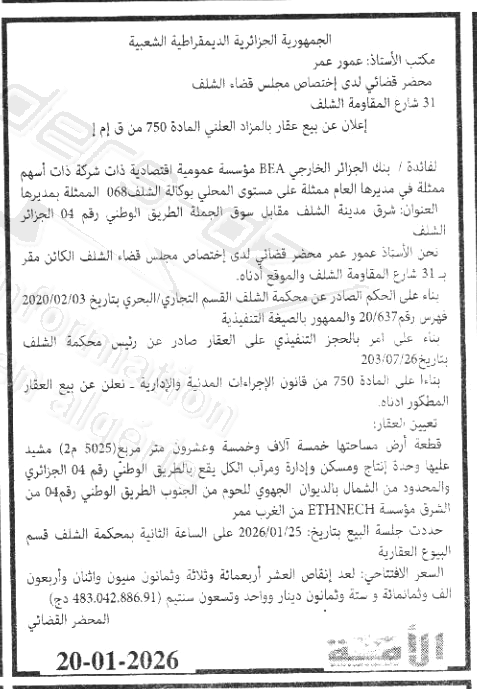 الجمهورية الجزائرية الديمقراطية الشعبية
مكتب الأستاذ: عمور عمر
محضر قضائي لدى إختصاص مجلس قضاء الشلف
31 شارع المقاومة الشلف
إعلان عن بيع عقار بالمزاد العلني المادة 750 من ق إم إ
لفائدة / بنك الجزائر الخارجي BEA مؤسسة عمومية اقتصادية ذات شركة ذات أسهم
ممثلة في مديرها العام ممثلة على مستوى المحلي بوكالة الشلف068 الممثلة بمديرها
العنوان: شرق مدينة الشلف مقابل سوق الجملة الطريق الوطني رقم 04 الجزائر
الشلف
نحن الأستاذ عمور عمر محضر قضائي لدى إختصاص مجلس قضاء الشلف الكائن مقر
بـ 31 شارع المقاومة الشلف والموقع أدناه.
بناء على الحكم الصادر عن محكمة الشلف القسم التجاري/البحري بتاريخ 2020/02/03
فهرس رقم20/637 والممهور بالصيغة التنفيذية
بناء على امر بالحجز التنفيذي على العقار صادر عن رئيس محكمة الشلف
بتاريخ203/07/26
بناءا على المادة 750 من قانون الإجراءات المدنية والإدارية ـ نعلن عن بيع العقار
المطكور ادناه.
تعيين العقار:
قطعة أرض مساحتها خمسة آلاف وخمسة وعشرون متر مربع(5025 م2) مشيد
عليها وحدة إنتاج ومسكن وإدارة ومرآب الكل يقع بالطريق الوطني رقم 04 الجزائري
والمحدود من الشمال بالديوان الجهوي للحوم من الجنوب الطريق الوطني رقم04 من
الشرق مؤسسة ETHNECH من الغرب ممر
حددت جلسة البيع بتاريخ: 2026/01/25 على الساعة الثانية بمحكمة الشلف قسم
البيوع العقارية
السعر الافتتاحي: لعد إنقاص العشر أربعمائة وثلاثة وثمانون مليون واثنان وأربعون
الف وثمانمائة و ستة وثمانون دينار وواحد وتسعون سنتيم (483.042.886.91 دج)
المحضر القضائي
الأمة
20-01-2026